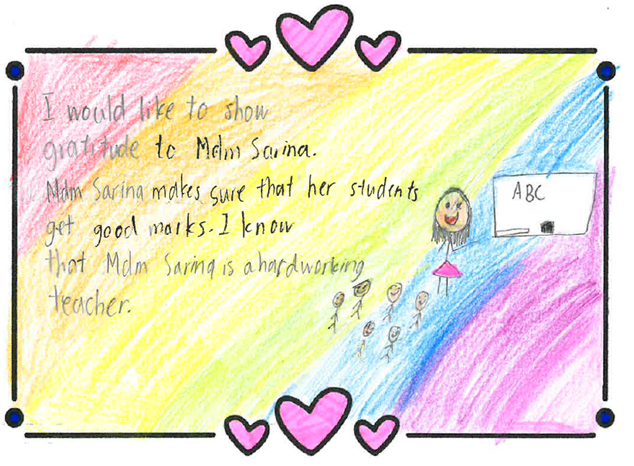 I would like to show
gratitude to Mdm Sarina.
Mdm Sarina makes sure that her students
get good marks. I know
that Mdm Sarina is a hardworking
teacher.
ABC